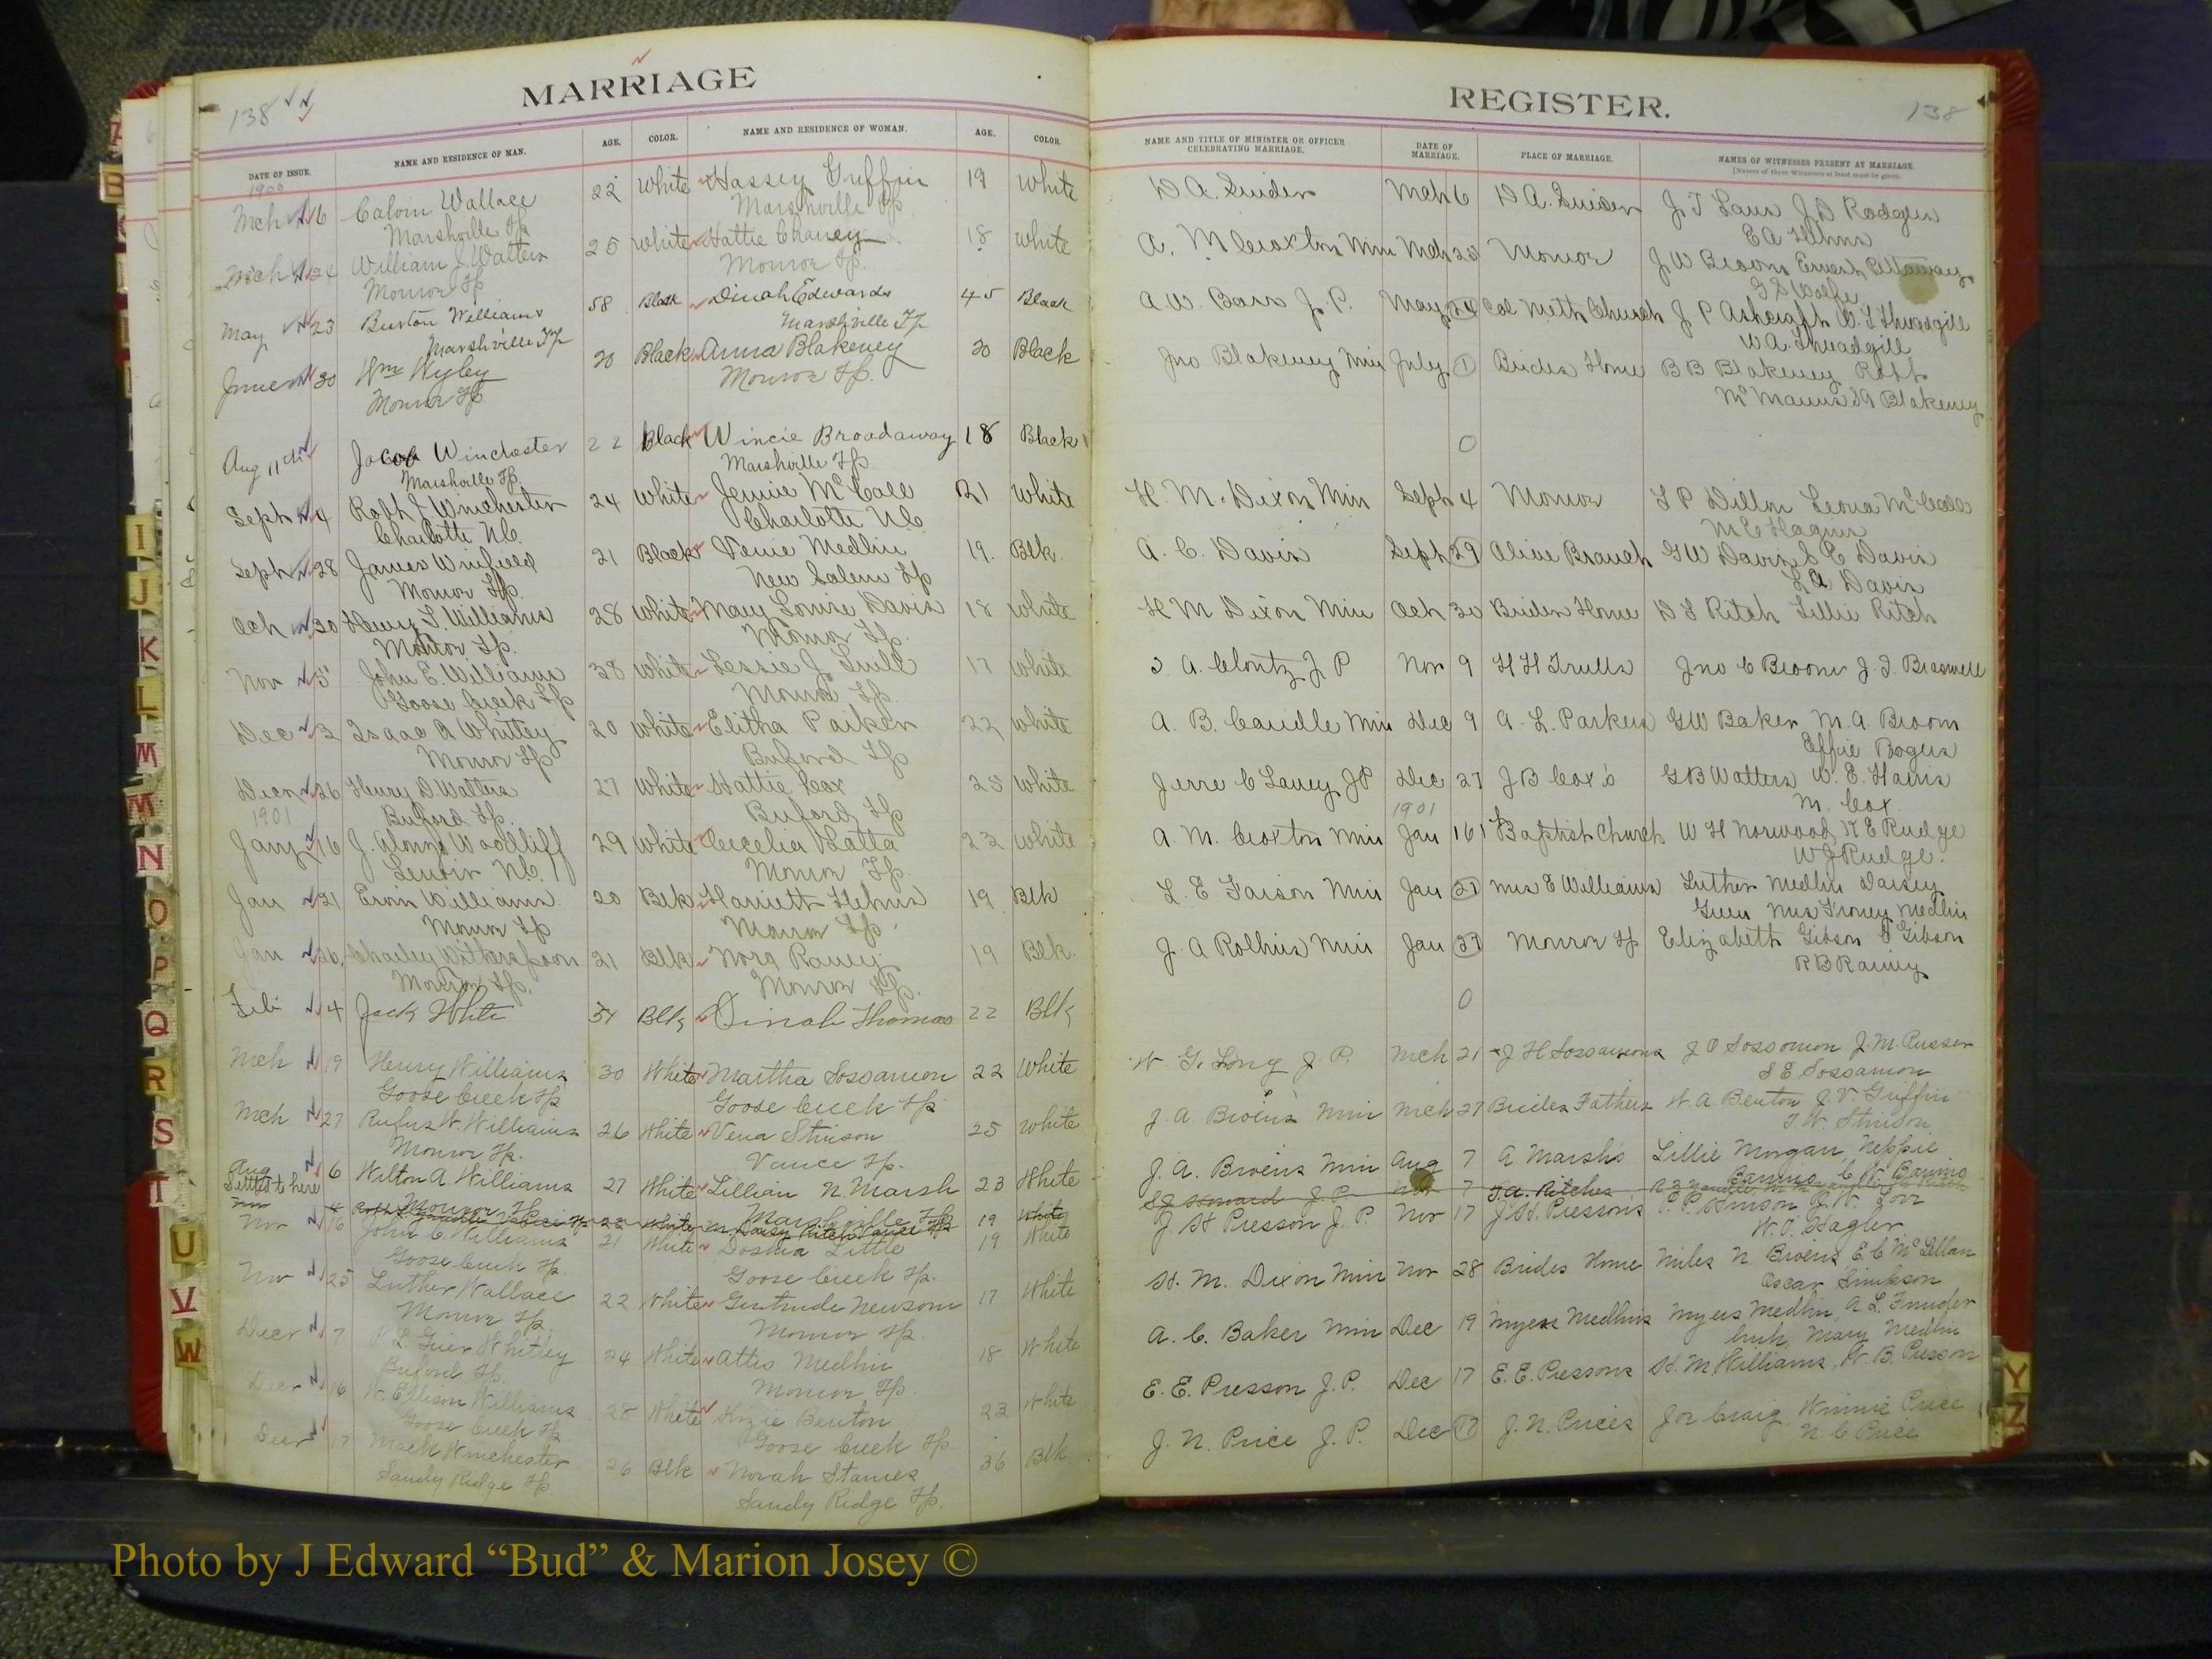 138
MARRIAGE
DATE OF ISSUE. NAME AND RESIDENCE OF MAN. AGE. COLOR. NAME AND RESIDENCE OF WOMAN. AGE. COLOR.
1900
Mch 6 Calvin Wallace 22 White Hassey Griffin 19 White
Marshville Tp Marshville Tp
Mch 24 William J. Walters 25 White Hattie Chaney 18 White
Monroe Tp Monroe Tp.
May 23 Burton Williams 58 Black Dinah Edwards 45 Black
Marshville Tp Marshville Tp
June 30 Wm Wyley 20 Black Anna Blakeney 20 Black
Monroe Tp Monroe Tp.
Aug 11th Jacob Winchester 22 Black Wincie Broadaway 18 Black
Marshville Tp. Marshville Tp
Sept 4 Robt J Winchester 24 White Jennie McCall 21 White
Charlotte N.C. Charlotte N.C.
Sept 28 James Winfield 21 Black Venie Medlin 19. Blk.
Monroe Tp. New Salem Tp
Oct 30 Henry T. Williams 28 White Mary Louise Davis 18 White
Monroe Tp. Monroe Tp.
Nov 5 John E. Williams 38 White Lessie J. Trull 17 White
Goose Creek Tp Monroe Tp.
Dec 3 Isaac A Whitley 20 White Elitha Parker 22 White
Monroe Tp Buford Tp
Decr 26 Henry D. Walters 27 White Hattie Cox 25 White
1901
Buford Tp. Buford Tp
Jany 16 J. Alonzo Woodliff 29 White Cecelia Batta 23 White
Lenoir N.C. Monroe Tp.
Jan 21 Ervin Williams 20 Blk Harriett Helms 19 Blk
Monroe Tp Monroe Tp.
Jan 26. Charley Witherspoon 21 Blk Nora Raney 19 Blk.
Monroe Tp. Monroe Tp.
Feb 4 Jack White Blk Dinah Thomas 22 Blk
Mch 19 Henry Williams 30 White Martha Sossamon 22 White
Goose Creek Tp Goose Creek Tp
Mch 27 Rufus W. Williams 26 White Vena Stinson 25 White
Monroe Tp. Vance Tp.
Aug 6 Wilton A. Williams 27 White Lillian N. Marsh 23 White
Monroe Tp. Marshville Tp
White M. Daisy Ritch Vance Tp 19 White
Nov 16 John C. Williams 21 White Doshia Little 19 White
Goose Creek Tp. Goose Creek Tp.
Nov 25 Luther Wallace 22 White Gertrude Newsom 17 White
Monroe Tp. Monroe Tp
Decr 7 Grier Whitley 24 White Attis Medlin 18 White
Buford Tp. Monroe, Tp
Decr 16 W. Ellison Williams 28 White Benton 23 White
Goose Creek Tp Goose Creek Tp
Decr 17 Mack Winchester 26 Blk Norah Starnes 36 Blk
Sandy Ridge Tp Sandy Ridge Tp.
REGISTER.
138
NAME AND TITLE OF MINISTER OR OFFICER CELEBRATING MARRIAGE. DATE OF MARRIAGE. PLACE OF MARRIAGE. NAMES OF WITNESSES PRESENT AT MARRIAGE.
[Names of three Witnesses at least must be given.
D. A. Snider Mch 6 D A. Snider J. T Laus J. D Rodgers
E A Helms
A. M Croxton Min Mch 25 Monroe J. W Broom Ernest
T S Wolfe
A W. Barr J. P. May 24 Col Meth Church J P Ashcraft W. T Threadgill
W A. Threadgill
Jno Blakeney Min July 1 Brides Home B B Blakeney Robt
McManus Blakeney
0
H. M. Dixon Min Sept 4 Monroe T P Dillon Leona McCall
M E Hagins
A. C. Davis Sept 29 Olive Branch G W Davis S C Davis
L A Davis
H M Dixon Min Oct 30 Brides Home D T Ritch Lillie Ritch
A. Clontz J P Nov 9 H H Trulls Jno C Broom J. F. Braswell
A. B. Caudle Min Dec 9 A. L. Parkers G W Baker M. A. Broom
Effie Rogers
Jerre C Laney JP Dec 27 J B Cox's G B Watters W. E. Harris
M. Cox
1901
A. M. Croxton Min Jan 16 Baptist Church W H Norwood, R E Rudge
W J Rudge.
L. E Faison Min Jan 21 Mrs E Williams Luther Medlin Daisey
Green Mrs Froney Medlin
J. A Rollins Min Jan 27 Monroe Tp Elizabeth Gibson Gibson
R B Rainey
0
W. G. Long J. P. Mch 21 J H Sossamons J O Sossomon J. M. Presser
S E Sossamon
J. A. Bivens Min Mch 27 Brides Fathers W A. Benton J. V. Griffin
T. W. Stinson
J. A. Bivens Min Aug 7 A Marsh's Lillie Morgan, Neppie
S J Howard J. P. Nov 7 J. A. Ritches
J. H Presson J. P. Nov 17 J. H. Pressons P. P. Stinson J. W. Love
W. O. Hagler
H. M. Dixon Min Nov 28 Brides Home Miles N Bivens, E. C. McLellan
Oscar Simpson
A. C. Baker Min Dec 19 Myers Medlins Myers Medlin, A. L. Funder
burk, Mary Medlin
E. E. Presson J. P. Dec 17 E. E. Pressons H. M. Williams, W. B. Presson
J. N. Price J. P. Dec J. N. Prices Joe Craig Winnie Price
N. C Price
A
B
I
J
K
L
M
M
N
O
P
Q
R
S
T
U
V
W
Y
Z
Photo by J Edward “Bud” & Marion Josey ©